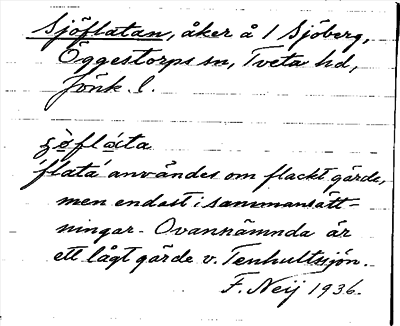 Sjöflatan, åker å 1 Sjöberg,
Öggestorps sn, Tveta hd,
Jönk. l.
ʂöflata
'flata' användes om flackt gärde,
men endast i sammansätt-
ningar. Ovannämnda är
ett lågt gärde v. Tenhultsjön.
F. Neij 1936.